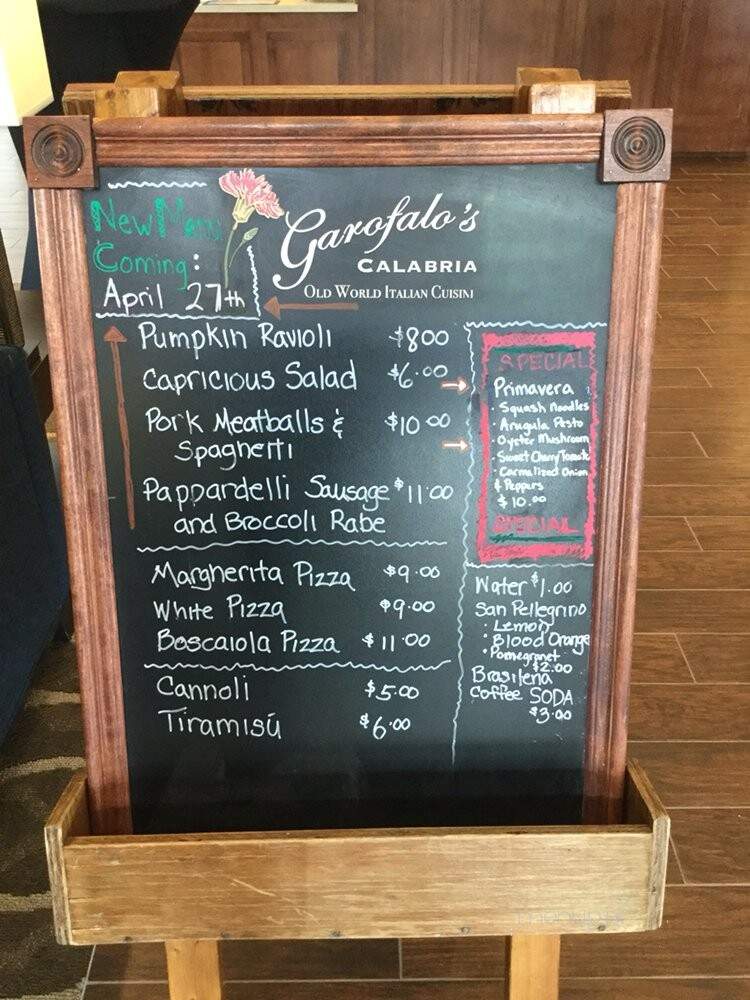 New Menu
Coming:
April 27th
Garofalo's
CALABRIA
OLD WORLD ITALIAN CUISINI
Pumpkin Ravioli $8.00
Capricious Salad $6.00
Pork Meatballs &
Spaghetti $10.00
Pappardelli Sausage $11.00
and Broccoli Rabe
Margherita Pizza $9.00
White Pizza $9.00
Boscaiola Pizza $11.00
Cannoli $5.00
Tiramisú $6.00
SPECIAL
Primavera
· Squash Noodles
· Arugula Pesto
· Oyster Mushroom
· Sweet Cherry Tomato
· Carmalized Onion
& Peppers
$10.00
SPECIAL
Water $1.00
San Pellegrino
· Lemon
· Blood Orange
· Pomegranet
$2.00
Brasilena
Coffee SODA
$3.00